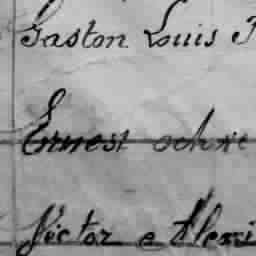 Gaston Louis
Ernest
Hector e Alexi